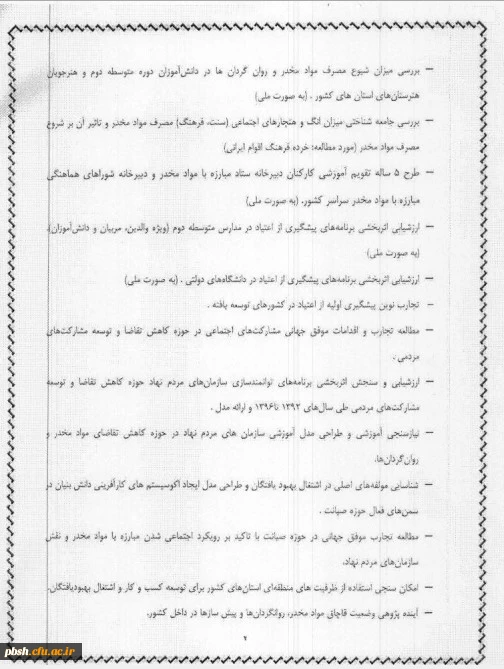 – بررسی میزان شیوع مصرف مواد مخدر و روان گردان ها در دانش‌آموزان دوره متوسطه دوم و هنرجویان
هنرستان‌های استان های کشور . (به صورت ملی)
– بررسی جامعه شناختی میزان انگ و هنجارهای اجتماعی (سنت، فرهنگ) مصرف مواد مخدر و تاثیر آن بر شروع
مصرف مواد مخدر (مورد مطالعه: خرده فرهنگ اقوام ایرانی)
– طرح ۵ ساله تقویم آموزشی کارکنان دبیرخانه ستاد مبارزه با مواد مخدر و دبیرخانه شوراهای هماهنگی
مبارزه با مواد مخدر سراسر کشور. (به صورت ملی)
– ارزشیابی اثربخشی برنامه‌های پیشگیری از اعتیاد در مدارس متوسطه دوم (ویژه والدین، مربیان و دانش‌آموزان).
(به صورت ملی)
– ارزشیابی اثربخشی برنامه‌های پیشگیری از اعتیاد در دانشگاه‌های دولتی . (به صورت ملی)
– تجارب نوین پیشگیری اولیه از اعتیاد در کشورهای توسعه یافته .
– مطالعه تجارب و اقدامات موفق جهانی مشارکت‌های اجتماعی در حوزه کاهش تقاضا و توسعه مشارکت‌های
مردمی .
– ارزشیابی و سنجش اثربخشی برنامه‌های توانمندسازی سازمان‌های مردم نهاد حوزه کاهش تقاضا و توسعه
مشارکت‌های مردمی طی سال‌های ۱۳۹۲ تا۱۳۹۶ و ارائه مدل .
– نیازسنجی آموزشی و طراحی مدل آموزشی سازمان های مردم نهاد در حوزه کاهش تقاضای مواد مخدر و
روان‌گردان‌ها.
– شناسایی مولفه‌های اصلی در اشتغال بهبود یافتگان و طراحی مدل ایجاد اکوسیستم های کارآفرینی دانش بنیان در
سمن‌های فعال حوزه صیانت .
– مطالعه تجارب موفق جهانی در حوزه صیانت با تاکید بر رویکرد اجتماعی شدن مبارزه با مواد مخدر و نقش
سازمان‌های مردم نهاد.
– امکان سنجی استفاده از ظرفیت های منطقه‌ای استان‌های کشور برای توسعه کسب و کار و اشتغال بهبودیافتگان.
– آینده پژوهی وضعیت قاچاق مواد مخدر، روانگردان‌ها و پیش سازها در داخل کشور.
۲
pbsh.cfu.ac.ir